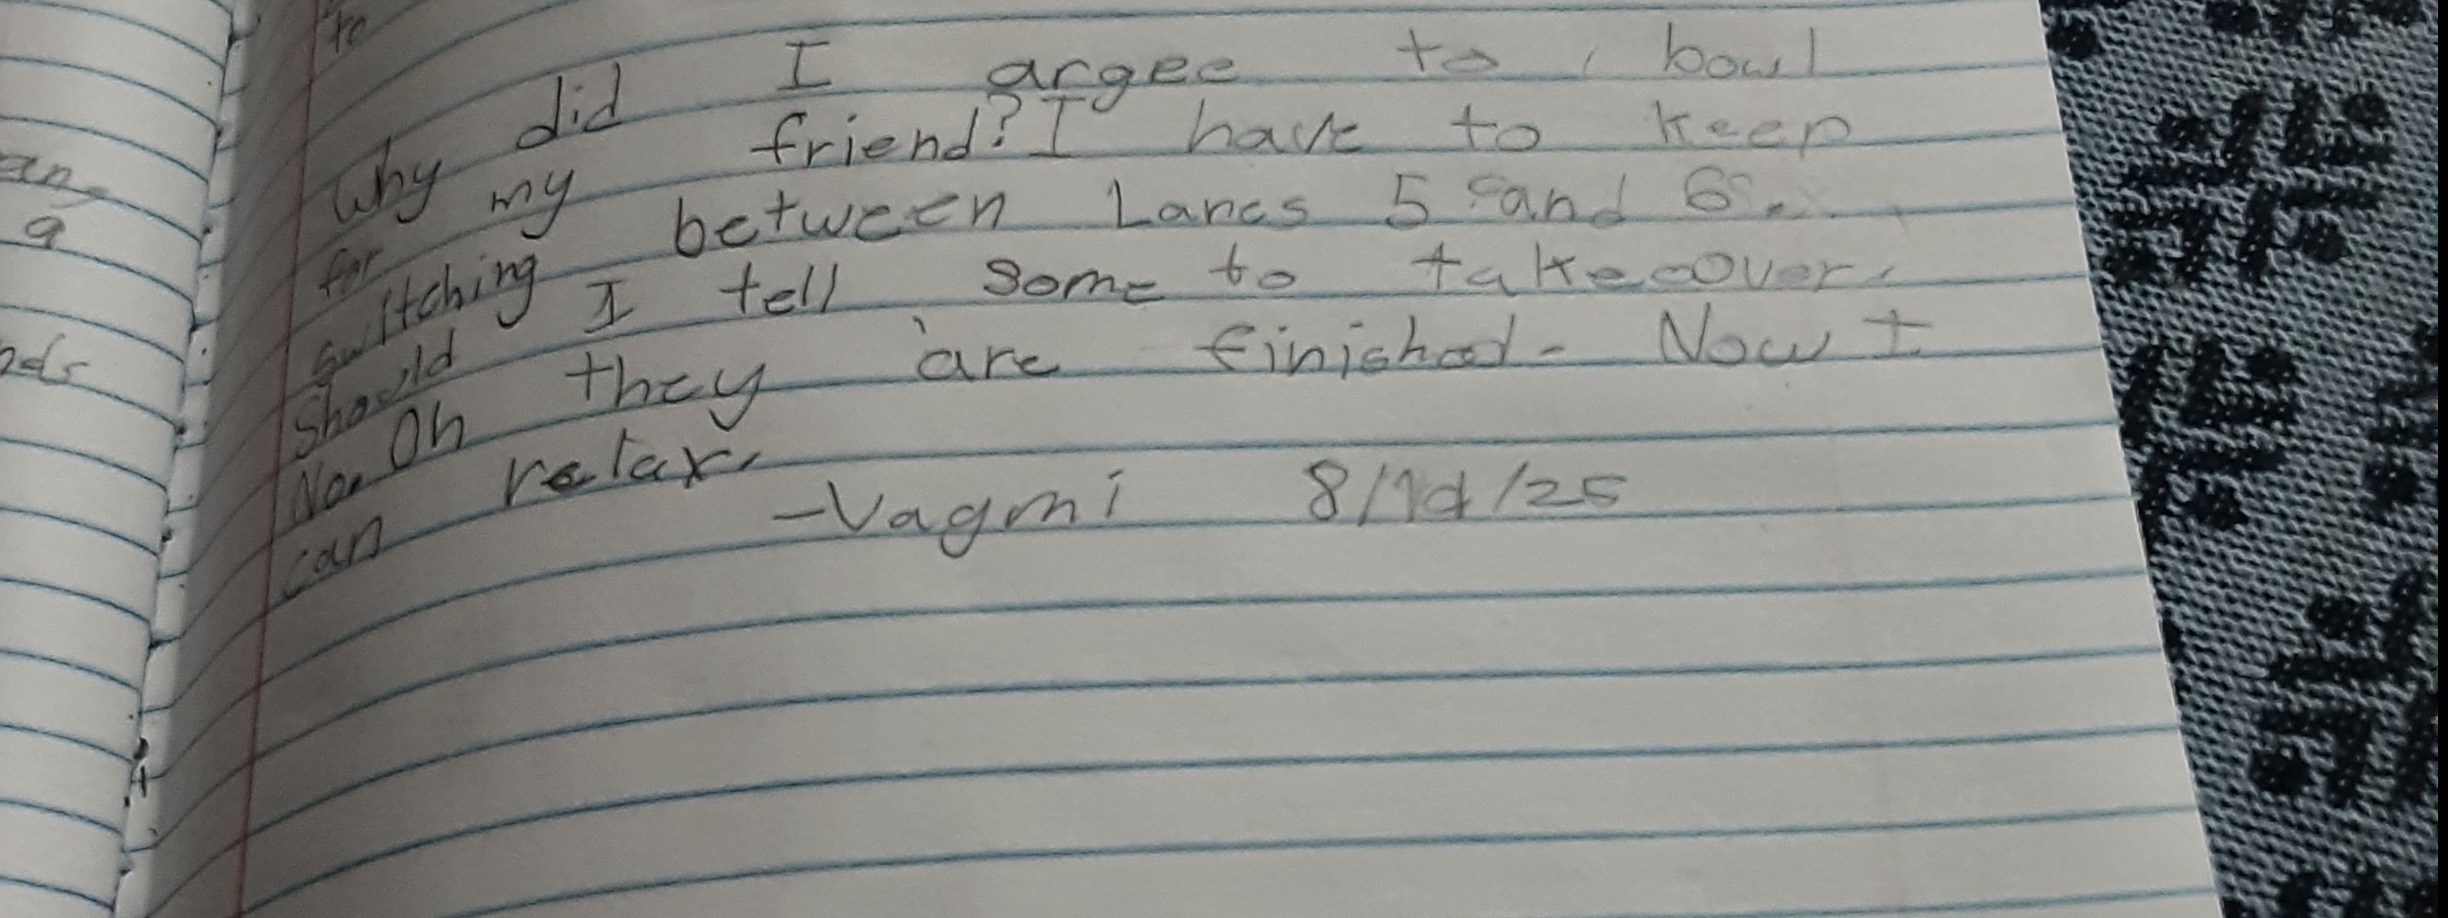 to
an
a
Why did I argee to bowl
for my friend? I have to keep
switching between Lanes 5 and 6.
Should I tell some to takeover.
No. Oh they are finished. Now I
can relax.
-Vagmi 8/1d/25